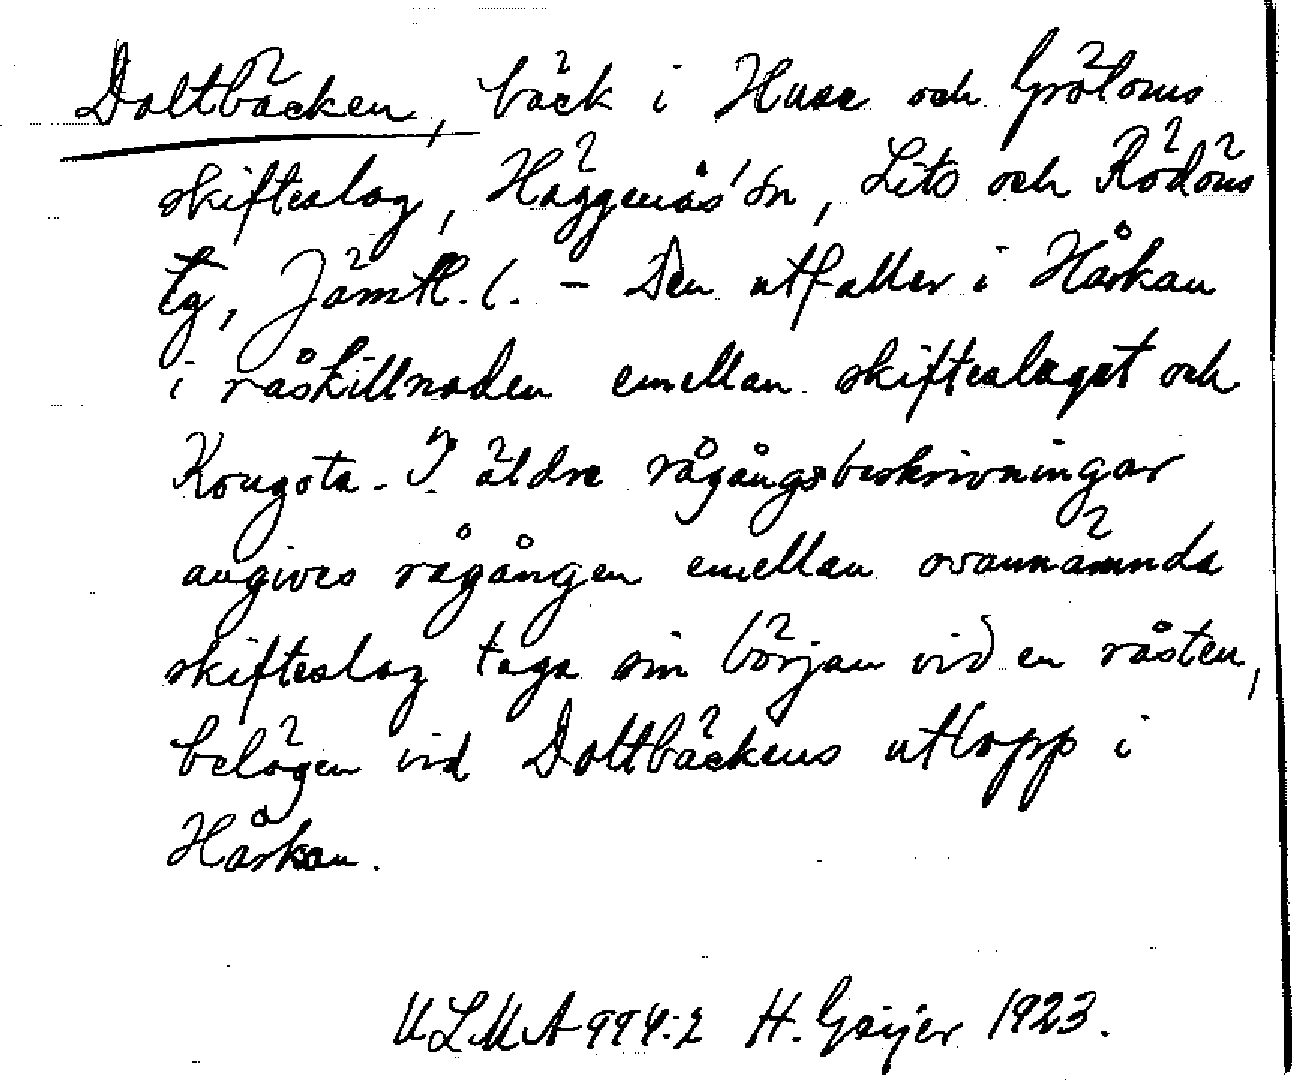 Doltbäcken, bäck i Huse och Gröloms
skifteslag, Häggenås' sn, Lits och Rödöns
tg, Jämtl. l. – Den utfaller i Hårkan
i råskillnaden emellan skifteslaget och
Kougsta. I äldre rågångsbeskrivningar
angives rågången emellan ovannämnda
skifteslag taga sin början vid en råsten,
belägen vid Doltbäckens utlopp i
Hårkan.
ULMA 994:2 H. Geijer 1923.